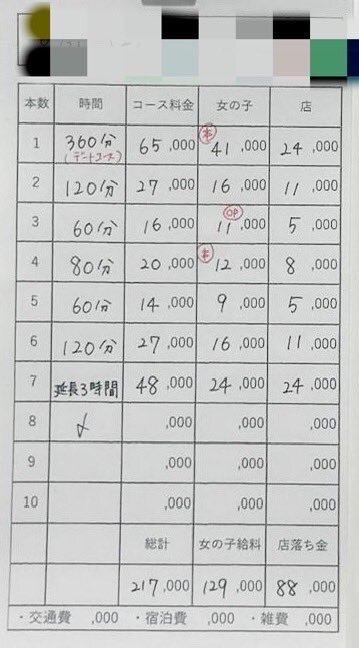 本数 時間 コース料金 女の子 店
1 360分 (デートコース) 65,000 本 41,000 24,000
2 120分 27,000 16,000 11,000
3 60分 16,000 OP 11,000 5,000
4 80分 20,000 本 12,000 8,000
5 60分 14,000 9,000 5,000
6 120分 27,000 16,000 11,000
7 延長3時間 48,000 24,000 24,000
8 ,000 ,000 ,000
9 ,000 ,000 ,000
10 ,000 ,000 ,000
総計 女の子給料 店落ち金
217,000 129,000 88,000
・交通費 ,000 ・宿泊費 ,000 ・雑費 ,000